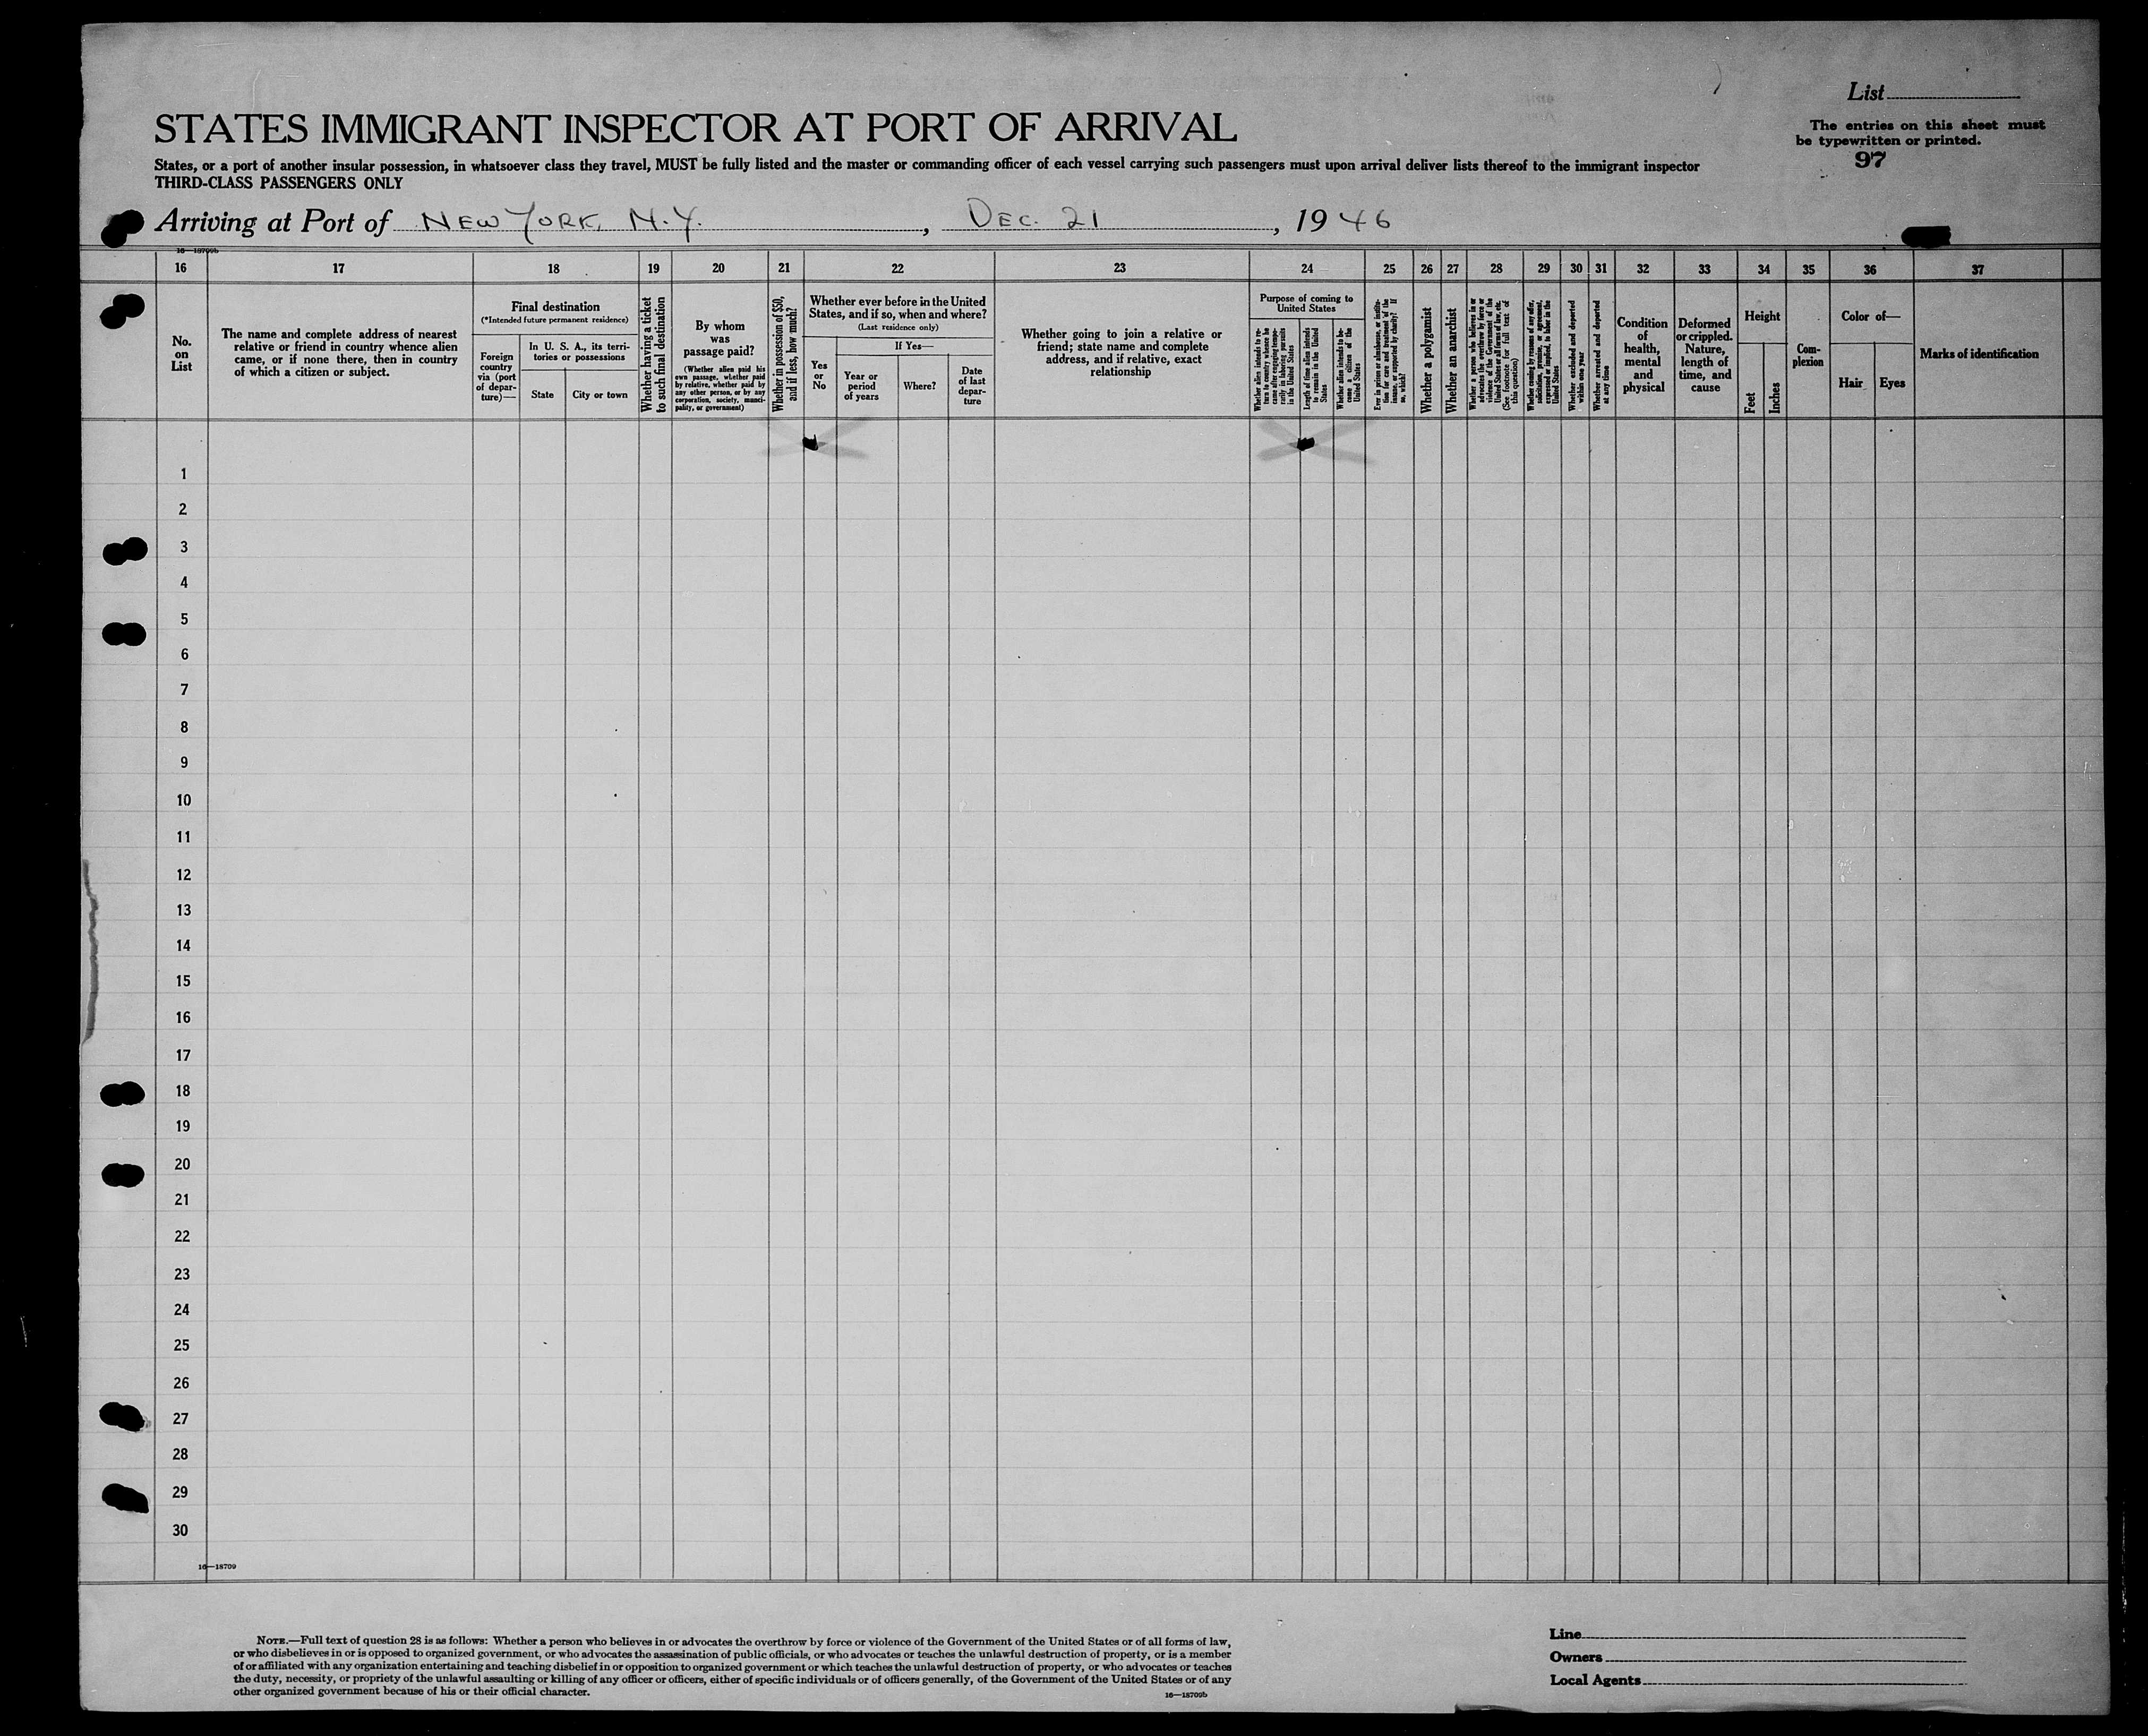 List
The entries on this sheet must
be typewritten or printed.
97
STATES IMMIGRANT INSPECTOR AT PORT OF ARRIVAL
States, or a port of another insular possession, in whatsoever class they travel, MUST be fully listed and the master or commanding officer of each vessel carrying such passengers must upon arrival deliver lists thereof to the immigrant inspector
THIRD-CLASS PASSENGERS ONLY
Arriving at Port of NEW YORK, N.Y., DEC. 21, 1946
16—18709b
16 17 18 19 20 21 22 23 24 25 26 27 28 29 30 31 32 33 34 35 36 37
No.
on
List
The name and complete address of nearest
relative or friend in country whence alien
came, or if none there, then in country
of which a citizen or subject.
Final destination
(*Intended future permanent residence)
Foreign
country
via (port
of depar-
ture)—
In U. S. A., its terri-
tories or possessions
State
City or town
Whether having a ticket
to such final destination
By whom
was
passage paid?
(Whether alien paid his
own passage, whether paid
by relative, whether paid by
any other person, or by any
corporation, society, munici-
pality, or government)
Whether in possession of $50,
and if less, how much?
Whether ever before in the United
States, and if so, when and where?
(Last residence only)
Yes
or
No
If Yes—
Year or
period
of years
Where?
Date
of last
depar-
ture
Whether going to join a relative or
friend; state name and complete
address, and if relative, exact
relationship
Purpose of coming to
United States
Whether alien intends to re-
turn to country whence he
came after engaging tempo-
rarily in laboring pursuits
in the United States
Length of time alien intends
to remain in the United
States
Whether alien intends to be-
come a citizen of the
United States
Ever in prison or almshouse, or institu-
tion for care and treatment of the
insane, or supported by charity? If
so, which?
Whether a polygamist
Whether an anarchist
Whether a person who believes in or
advocates the overthrow by force or
violence of the Government of the
United States or all forms of law, etc.
(See footnote for full text of
this question)
Whether coming by reasons of any offer,
solicitation, promise, or agreement,
expressed or implied, to labor in the
United States
Whether excluded and deported
within one year
Whether arrested and deported
at any time
Condition
of
health,
mental
and
physical
Deformed
or crippled.
Nature,
length of
time, and
cause
Height
Feet
Inches
Com-
plexion
Color of—
Hair
Eyes
Marks of identification
1
2
3
4
5
6
7
8
9
10
11
12
13
14
15
16
17
18
19
20
21
22
23
24
25
26
27
28
29
30
16—18709
NOTE.—Full text of question 28 is as follows: Whether a person who believes in or advocates the overthrow by force or violence of the Government of the United States or of all forms of law,
or who disbelieves in or is opposed to organized government, or who advocates the assassination of public officials, or who advocates or teaches the unlawful destruction of property, or is a member
of or affiliated with any organization entertaining and teaching disbelief in or opposition to organized government or which teaches the unlawful destruction of property, or who advocates or teaches
the duty, necessity, or propriety of the unlawful assaulting or killing of any officer or officers, either of specific individuals or of officers generally, of the Government of the United States or of any
other organized government because of his or their official character.
16—18709b
Line
Owners
Local Agents